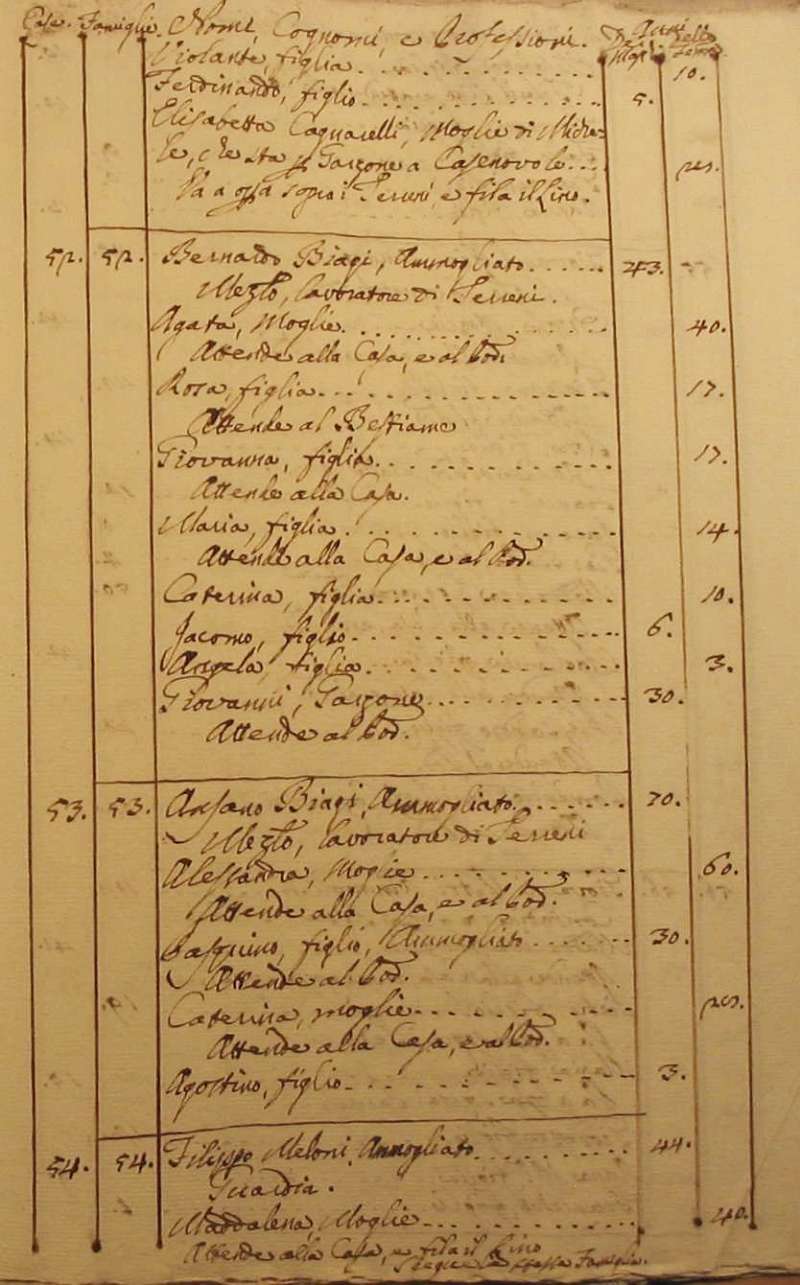 Case. Famiglie. Nomi, Cognomi, e Professioni. Anni
Degl' Delle
Violante, figlia 10.
Ferdinando, figlio 5.
Elisabetta Cagnarelli, Moglie di Miche-
le, che sta p Garzone a Casenovole
Va a opa sopra i Terreni, e fila il Lino.
52. 52. Bernardo Biagi, Ammogliato 43.
Mezo, lavoratore di Terreni.
Agata, Moglie 40.
Attende alla Casa, e al Pod.
Rosa, figlia 17.
Attende al Bestiame
Giovanna, figlia 17.
Attende alla Casa.
Maria, figlia 14.
Attende alla Casa, e al Pod.
Caterina, figlia 10.
Jacomo, figlio 6.
Angela, figlia 3.
Giovanni, Garzone 30.
Attende al Pod.
53. 53. Ansano Biagi, Ammogliato 70.
Mezo, lavoratore di Terreni
Alessandra, Moglie 60.
Attende alla Casa, e al Pod.
Pasquino, figlio, Ammogliato 30.
Attende al Pod.
Caterina, moglie
Attende alla Casa, e al Pod.
Agostino, figlio 3.
54. 54. Filippo Meloni, Ammogliato 44.
Guardia.
Maddalena, Moglie 40.
Attende alla Casa, e fila il Lino
Segue la stessa Famiglia.